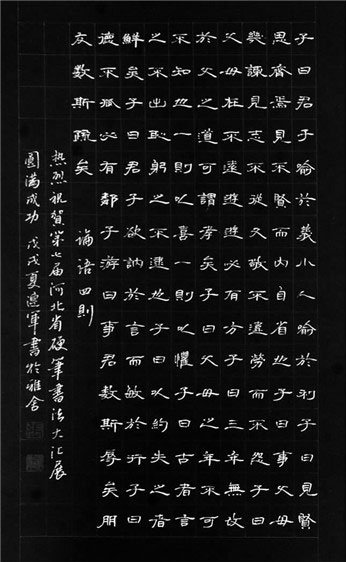 子曰君子喻於義小人喻於利子曰見賢
思齊焉見不賢而内自省也子曰事父母
幾諫見志不從又敬不違勞而不怨子曰
父母在不遠遊遊必有方子曰三年無改
於父之道可謂孝矣子曰父母之年不可
不知也一則以喜一則以懼子曰古者言
之不出恥躬之不逮也子曰以約失之者
鮮矣子曰君子欲訥於言而敏於行子曰
德不孤必有鄰子游曰事君數斯辱矣朋
友數斯疏矣
論語四則
熱烈祝賀第七届河北省硬筆書法大汇展
圓滿成功 戊戌夏遵軍書於雅舍